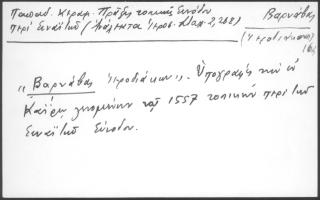 Παπαδ. Κεραμ. Πράξις τοπικῆς Συνόδου
περὶ Σιναΐτου (Ἀνάλεκτα Ἱεροσ. Σταχ. 2, 268)
Βαρνάβας
(Ἱεροδιάκονος)
"Βαρνάβας Ἱεροδιάκων". Ὑπογραφὴ τῆς ἐν
Καΐρῳ γενομένης τῷ 1557 τοπικῆς περὶ τοῦ
Σιναΐτου Συνόδου.